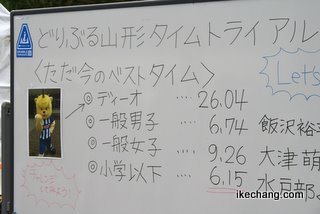 どりぶる山形タイムトライアル
<ただ今のベストタイム>
Let's
◎ディーオ ‥‥ 26.04
◎一般男子 ‥‥ 6.74 飯沢裕
◎一般女子 ‥‥ 9.26 大津萌
◎小学以下 ‥‥ 6.15 水戸部
チャレンジ
してみよう!
ikechang.com